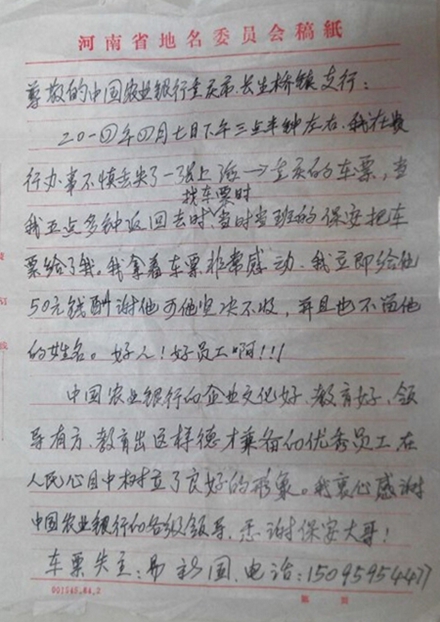 河南省地名委员会稿紙
尊敬的中国农业银行重庆市长生桥镇支行：
二〇一四年四月七日下午三点半钟左右，我在贵
行办事不慎丢失了一张上海→重庆的车票，当
找车票时
我五点多钟返回去时，当时当班的保安把车
票给了我。我拿着车票非常感动，我立即给他
50元钱酬谢他可他坚决不收，并且也不留他
的姓名。好人！好员工啊！！！
中国农业银行的企业文化好、教育好、领
导有方、教育出这样德才兼备的优秀员工，在
人民心目中树立了良好的形象。我衷心感谢
中国农业银行的各级领导，感谢保安大哥！
车票失主：易 国，电话：15095954477
001545.84.2